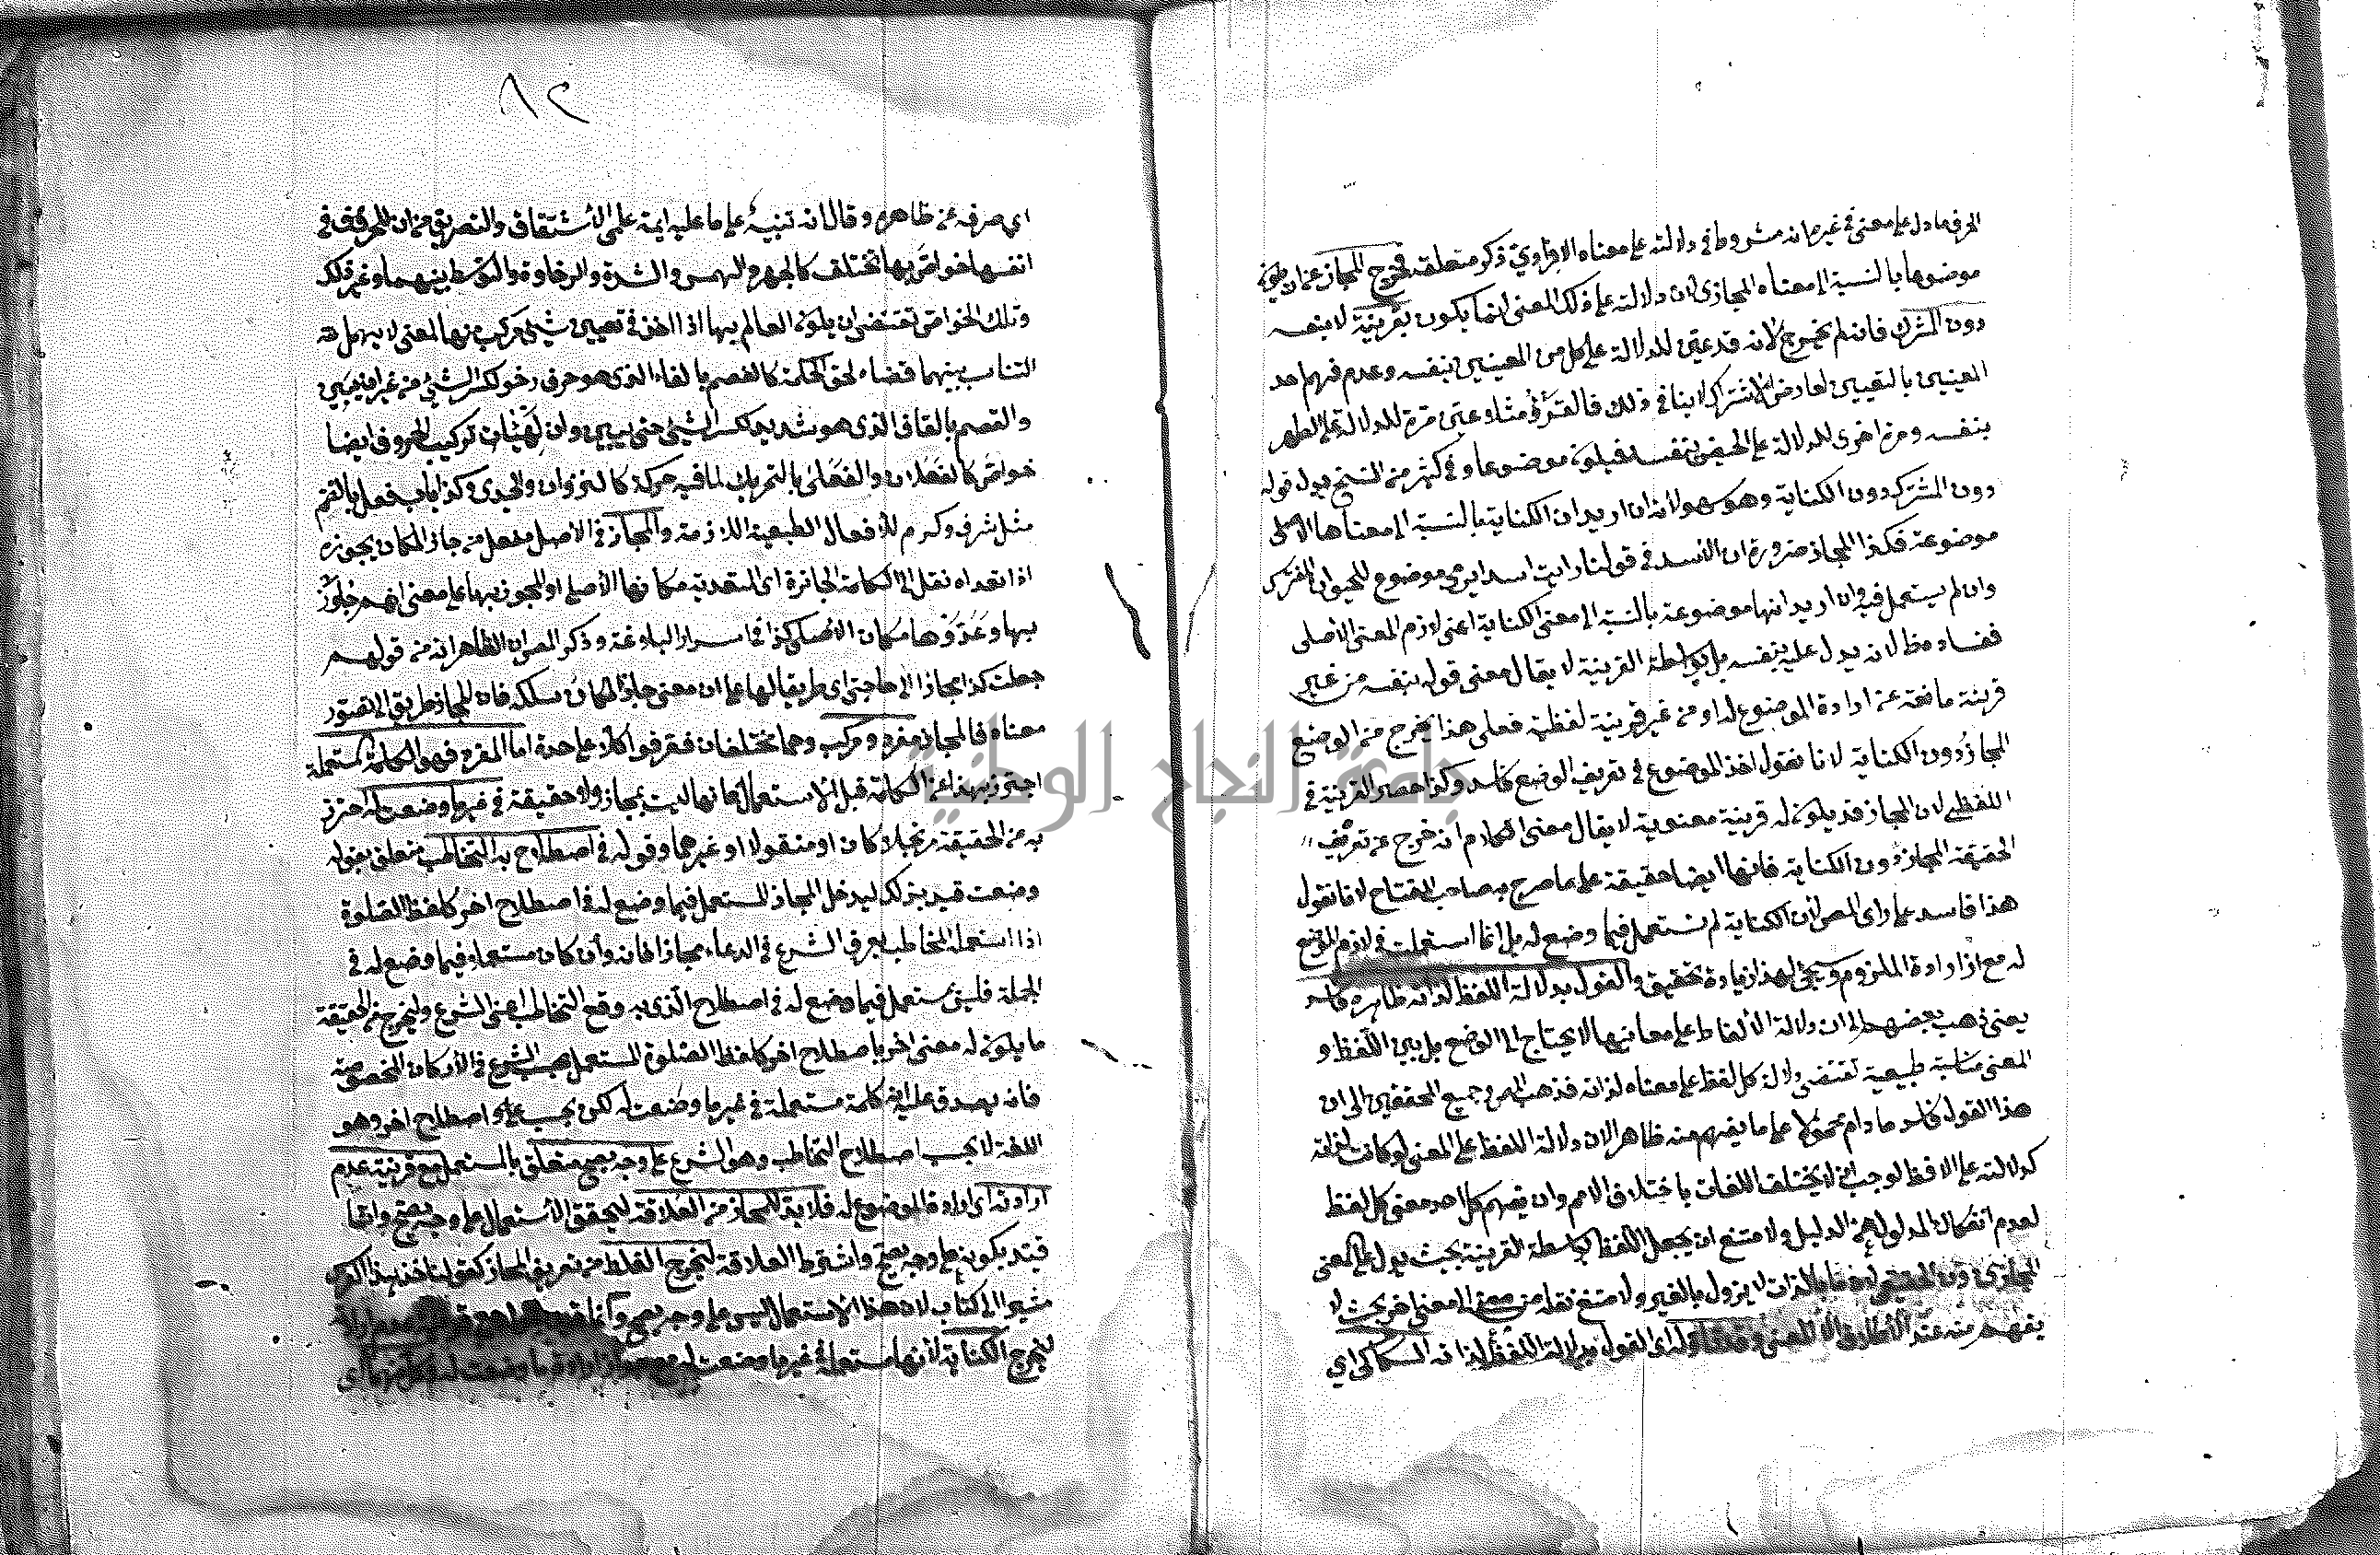 الحرف ما دل على معنى في غيره انه مشروط في دلالته على معناه الافرادي ذكر متعلقه فخرج المجاز عن ان يكون
موضوعا بالنسبة الى معناه المجازي لان دلالته على ذلك المعنى انما يكون بقرينة لا بنفسه
دون المشترك فانه لم يخرج لانه قد عين للدلالة على كل من المعنيين بنفسه وعدم فهم احد
المعنيين بالتعيين لعارض الاشتراك لا ينافي ذلك فالقرؤ مثلا عين مرة للدلالة على الطهر
بنفسه ومرة اخرى للدلالة على الحيض بنفسه فيكون موضوعا وفي كثير من النسخ بدل قوله
دون المشترك دون الكناية وهو سهو لانه ان اريد ان الكناية بالنسبة الى معناها الاصلي
موضوعة فكذا المجاز ضرورة ان الاسد في قولنا رايت اسدا يرمي موضوع للحيوان المفترس
وان لم يستعمل فيه وان اريد انها موضوعة بالنسبة الى معنى الكناية اعني لازم المعنى الاصلي
ففساده ظ لانه لا يدل عليه بنفسه بل بواسطة القرينة لا يقال معنى قوله بنفسه من غير
قرينة مانعة عن ارادة الموضوع له او من غير قرينة لفظية فعلى هذا يخرج من الوضع
المجاز دون الكناية لانا نقول اخذ الموضوع في تعريف الوضع فاسد وكذا حصر القرينة في
اللفظي لان المجاز قد يكون له قرينة معنوية لا يقال معنى الكلام انه خرج عن تعريف
الحقيقة المجاز دون الكناية فانها ايضا حقيقة على ما صرح به صاحب المفتاح لانا نقول
هذا فاسد على راى المص لان الكناية لم تستعمل فيما وضع له بل انما استعملت في لازم الموضوع
له مع ارادة الملزوم وسيجئ لهذا زيادة تحقيق والقول بدلالة اللفظ لذاته ظاهره فاسد
يعني ذهب بعضهم الى ان دلالة الألفاظ على معانيها لا يحتاج الى الوضع بل بين اللفظ و
المعنى مناسبة طبيعية تقتضي دلالة كل لفظ على معناه لذاته فذهب المص وجميع المحققين الى ان
هذا القول فاسد ما دام محمولا على ما يفهم منه ظاهرا لان دلالة اللفظ على المعنى لو كانت لذاته
كدلالته على اللافظ لوجب ان لا يختلف اللغات باختلاف الامم وان يفهم كل احد معنى كل لفظ
لعدم انفكاك المدلول عن الدليل ولامتنع ان يجعل اللفظ بواسطة القرينة بحيث يدل على المعنى
المجازي دون الحقيقي لان ما بالذات لا يزول بالغير ولامتنع نقله من معنى الى معنى اخر بحيث لا
يفهم منه عند الاطلاق الا المعنى الثاني وقد تأوله اى القول بدلالة اللفظ لذاته السكاكي اي
٨٢
اي صرفه عن ظاهره وقال انه تنبيه على ما عليه ايمة علمي الاشتقاق والتصريف من ان للحروف في
انفسها خواص بها تختلف كالجهر والهمس والشدة والرخاوة والتوسط بينهما وغير ذلك
وتلك الخواص تقتضي ان يكون العالم بها اذا اخذ في تعيين شيئ مركب منها لمعنى لا يهمل
التناسب بينهما قضاء لحق الحكمة كالفصم بالفاء الذي هو حرف رخو لكسر الشئ من غير ان يبين
والقصم بالقاف الذي هو شديد لكسر الشئ حتى يبين وان لهيئات تركيب الحروف ايضا
خواص كالفعلان والفعلى بالتحريك لما فيه حركة كالنزوان والحيدى وكذا باب فعل بالضم
مثل شرف وكرم للافعال الطبيعية اللازمة والمجاز في الاصل مفعل من جاز المكان يجوزه
اذا تعداه نقل الى الكلمة الجائزة اى المتعدية مكانها الأصلي او المجوز بها على معنى انهم جاوزوا
بها وعدوها مكان الاصلي كذا في اسرار البلاغة وذكر المص ان الظاهر انه من قولهم
جعلت كذا مجازا الى حاجتي اى طريقا لها على ان معنى جاز المكان سلكه فان المجاز طريق الى تصور
معناه فالمجاز مفرد ومركب وهما مختلفان فعرفوا كلا على حدة اما المفرد فهو الكلمة المستعملة
احترز بهذا عن الكلمة قبل الاستعمال فانها ليست بمجاز ولا حقيقة في غير ما وضعت له احترز
به عن الحقيقة مرتجلا كان او منقولا او غيرهما وقوله في اصطلاح به التخاطب متعلق بقوله
وضعت قيد بذلك ليدخل المجاز المستعمل فيما وضع له في اصطلاح اخر كلفظ الصلوة
اذا استعمله المخاطب بعرف الشرع في الدعاء مجازا فانه وان كان مستعملا فيما وضع له في
الجملة فليس بمستعمل فيما وضع له في اصطلاح الذي به وقع التخاطب اعني الشرع وليخرج من الحقيقة
ما يكون له معنى اخر باصطلاح اخر كلفظ الصلوة المستعمل بحسب الشرع في الأركان المخصوصة
فانه يصدق عليه انه كلمة مستعملة في غير ما وضعت له لكن بحسب اصطلاح اخر وهو
اللغة لا بحسب اصطلاح التخاطب وهو الشرع على وجه يصح متعلق بالمستعملة مع قرينة عدم
ارادته اى ارادة الموضوع له فلا بد للمجاز من العلاقة ليتحقق الاستعمال على وجه يصح وانما
قيد بكونه على وجه يصح واشترط العلاقة ليخرج الغلط من تعريف المجاز كقولنا خذ هذا الفرس
مشيرا الى كتاب لان هذا الاستعمال ليس على وجه يصح وانما قيد
ليخرج الكناية لأنها مستعملة في غير ما وضعت له مع جواز ارادة ما وضعت له